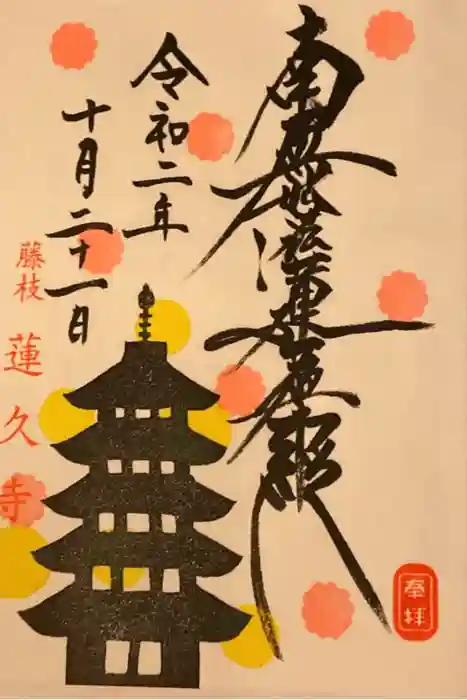 南無妙法蓮華経
奉拝
令和二年
十月二十一日
藤枝
蓮久寺